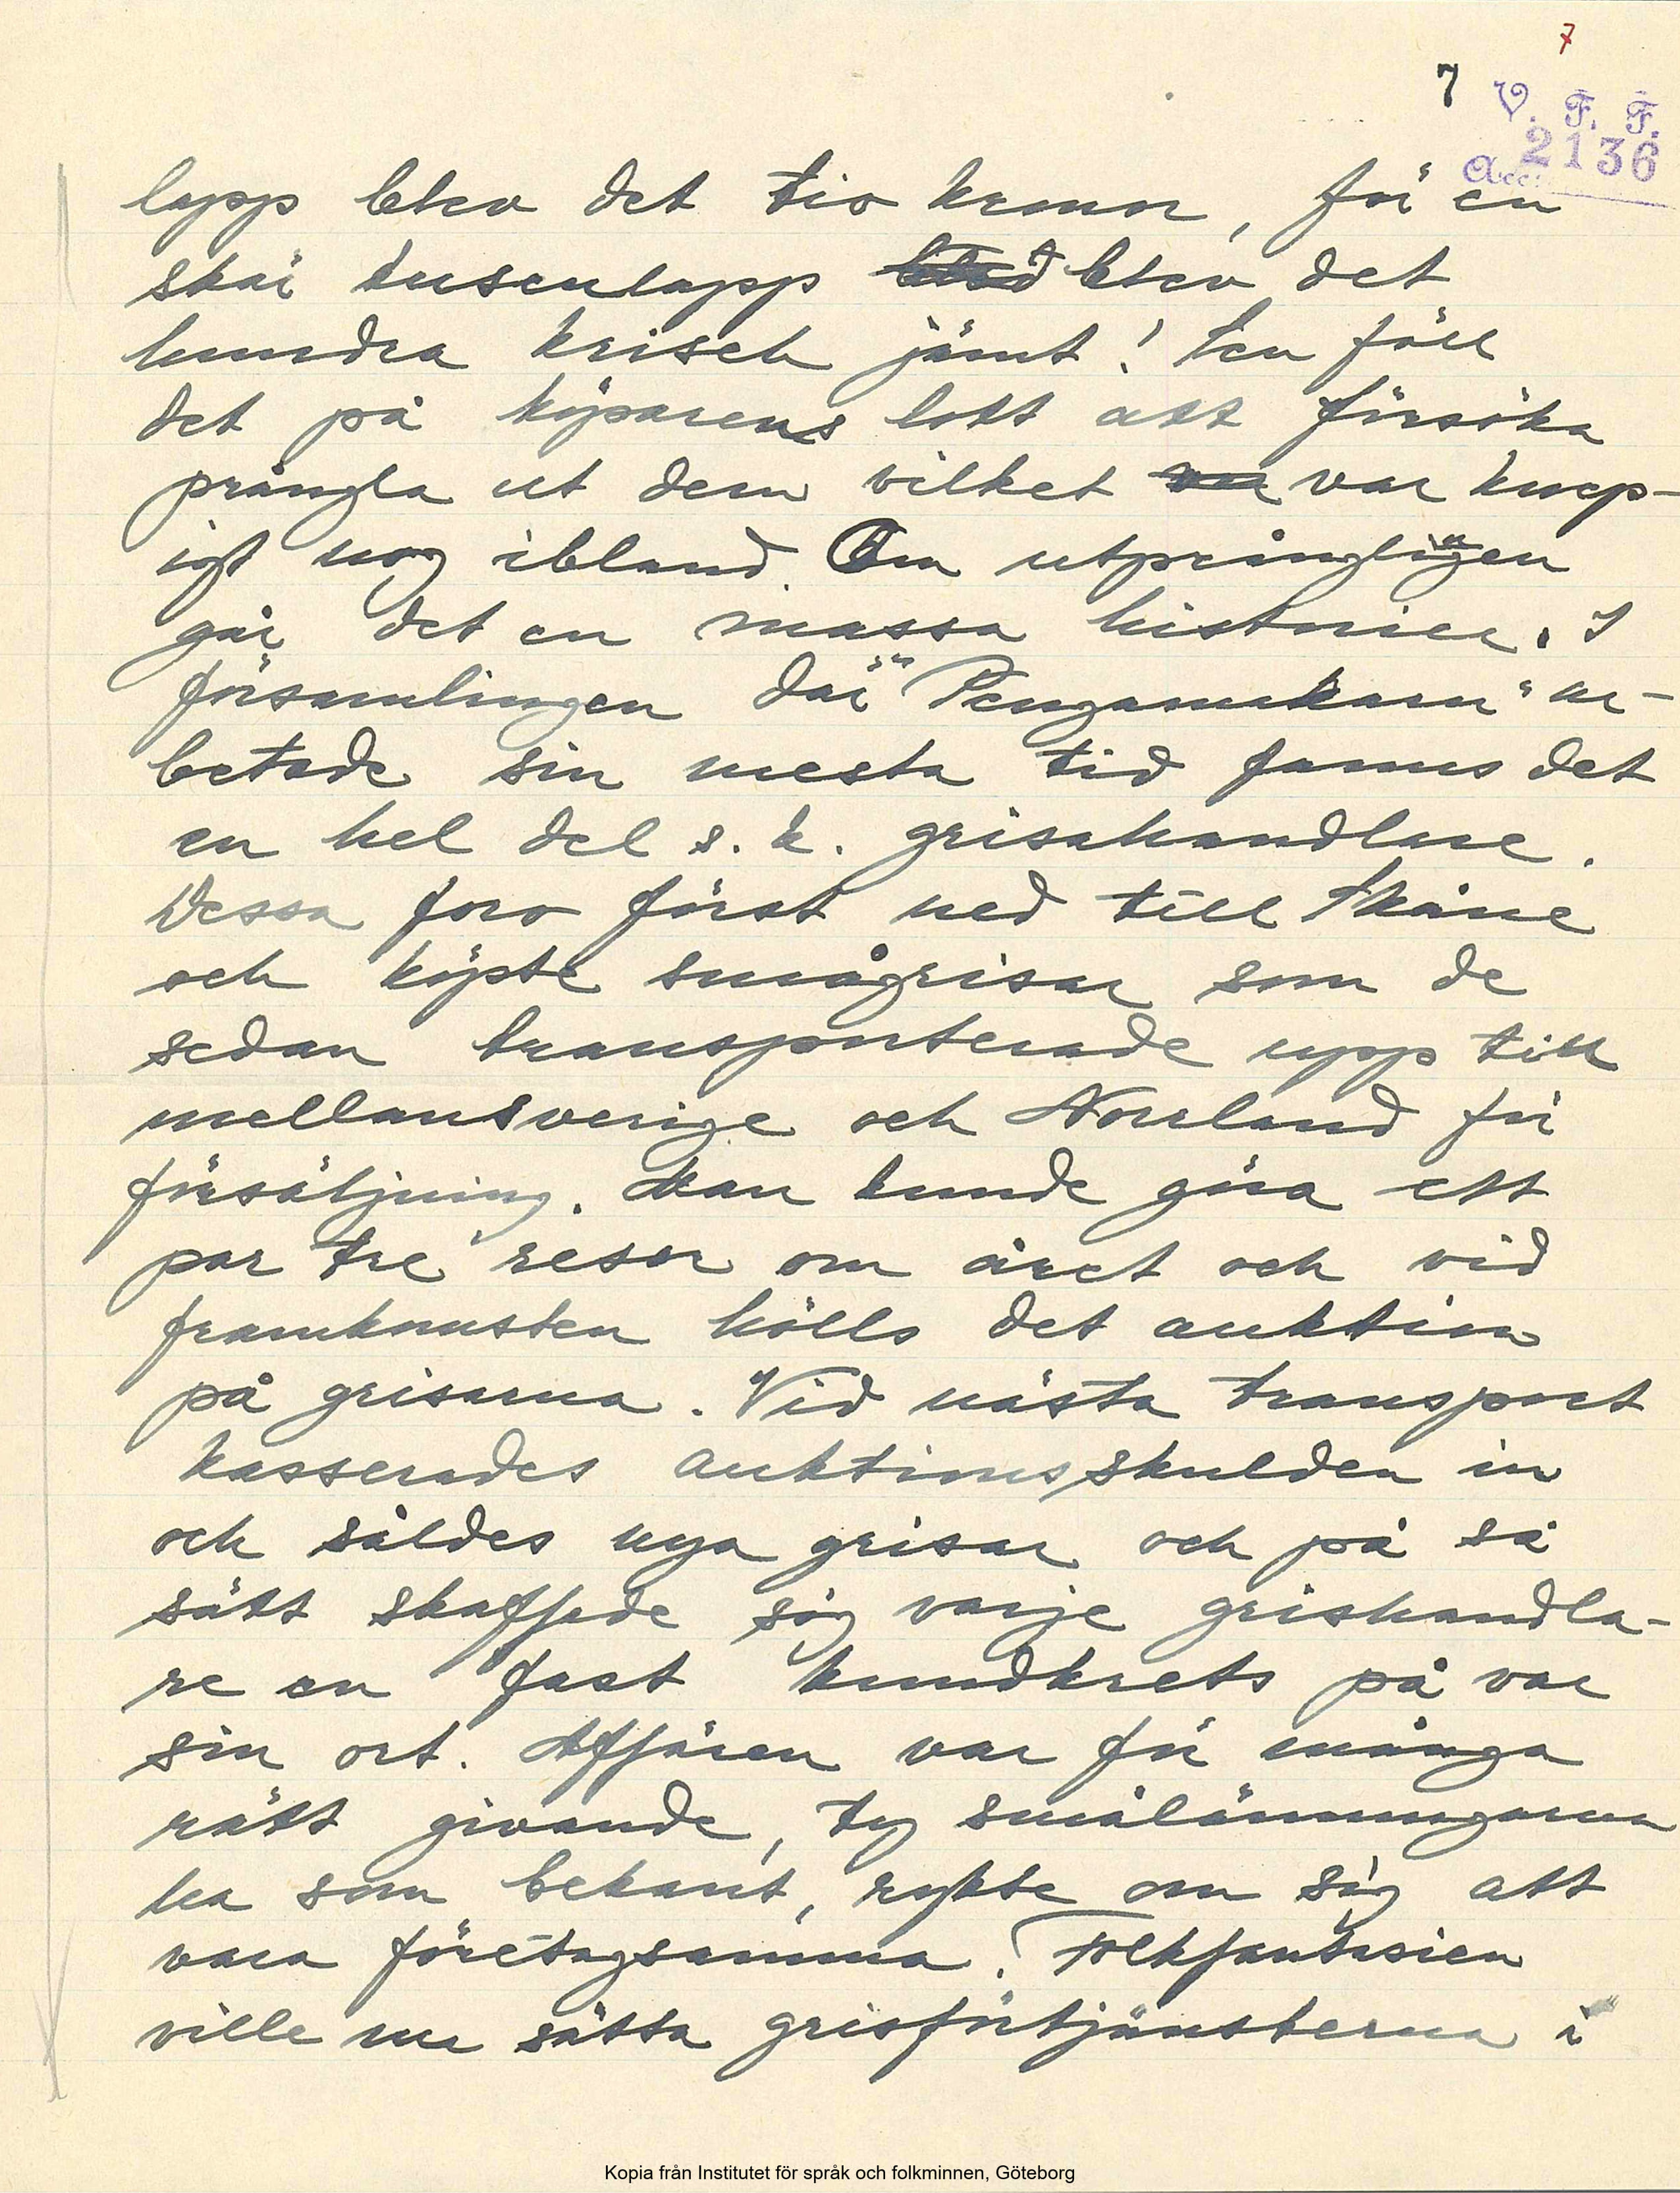 7
7
V. F. F.
Acc: 2136
lapp blev det tio kronor, för en
skär tusenlapp blev det
hundra krisch jämt! Sen föll
det på köparens lott att försöka
prångla ut dem vilket var knep-
igt nog ibland. Om utprånglingen
går det en massa historier. I
församlingen där "Pengamekarn" ar-
betade sin mesta tid fanns det
en hel del s. k. grisahandlare.
Dessa foro först ned till Skåne
och köpte smågrisar som de
sedan transporterade upp till
mellansverige och Norrland för
försäljning. Man kunde göra ett
par tre resor om året och vid
framkomsten hölls det auktion
på grisarna. Vid nästa transport
kasserades auktionsskulden in
och såldes nya grisar och på så
sätt skaffade sig varje grishandla-
re en fast kundkrets på var
sin ort. Affären var för många
rätt givande, ty smålänningarna
ha som bekant, rykte om sig att
vara företagsamma. Folkfantasien
ville nu sätta grisförtjänsterna i
Kopia från Institutet för språk och folkminnen, Göteborg